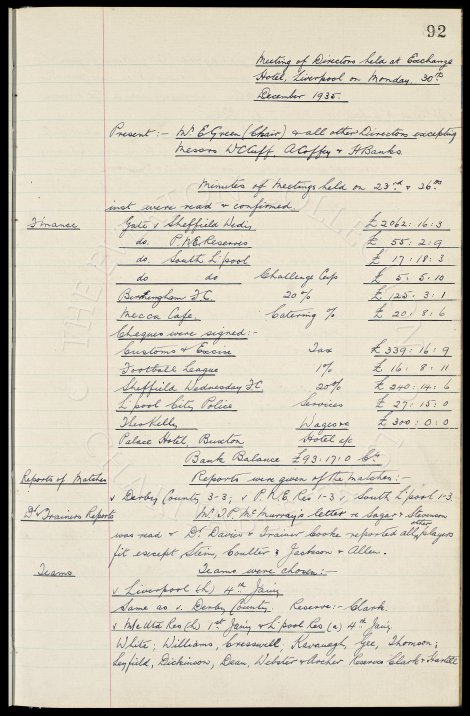 92
Meeting of Directors held at Exchange
Hotel, Liverpool on Monday, 30th
December 1935.
Present :- Mr E Green (Chair) & all other Directors excepting
Messrs W C Cuff, A Coffey & H Banks.
Minutes of Meetings held on 23rd & 26th
inst were read & confirmed.
Finance Gate v Sheffield Wedy £2062: 16: 3
do. P.N.E. Reserves £ 55: 2: 9
do. South L'pool £ 17: 18: 3
do do Challenge Cup £ 5: 5: 10
Birmingham F.C. 20% £ 125: 3: 1
Mecca Cafe Catering % £ 20: 8: 6
Cheques were signed:-
Customs & Excise Tax £ 339: 16: 9
Football League 1% £ 16: 8: 11
Sheffield Wednesday F.C 20% £ 240: 14: 6
L'pool City Police Services £ 27: 15: 0
Theo Kelly Wages £ 300: 0: 0
Palace Hotel, Buxton Hotel a/c
Bank Balance £93: 17: 0 Cr.
Reports of Matches Reports were given of the matches:-
v Derby County 3-3; v P.N.E. Res 1-3; v South L'pool 1-3
Dr & Trainers Reports Mr T.P. McMurray's letter re Sagar & Stevenson
was read & Dr. Davies & Trainer Cooke reported all other players
fit except Stein, Coulter & Jackson & Allen.
Teams Teams were chosen:-
v Liverpool (h) 4th Jany
Same as v. Derby County. Reserve:- Clark.
v M/c Utd Res (h) 1st Jany & L'pool Res (a) 4th Jany
White; Williams, Cresswell; Kavanagh, Gee, Thomson;
Leyfield, Dickinson, Dean, Webster & Archer Reserves Clark & Hartill